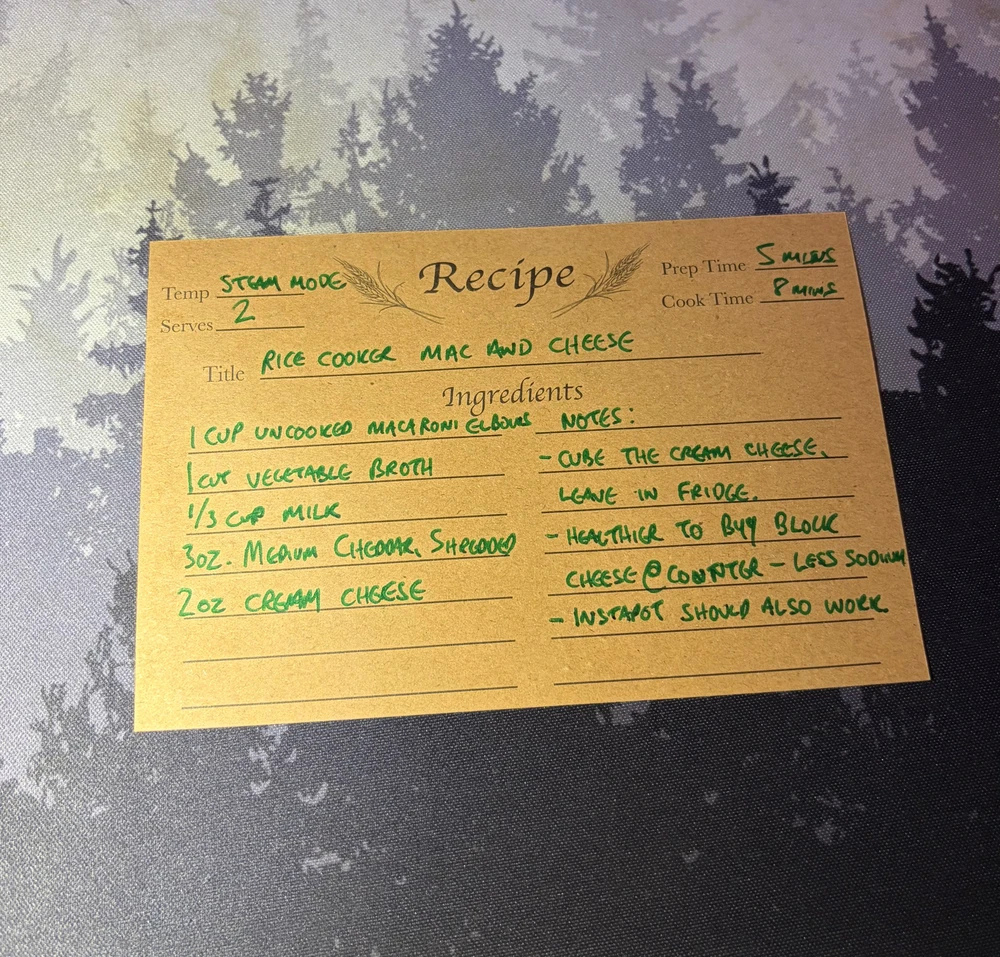 Recipe
Temp STEAM MODE
Serves 2
Prep Time 5 MINS
Cook Time 8 MINS
Title RICE COOKER MAC AND CHEESE
Ingredients
1 CUP UNCOOKED MACARONI ELBOWS
1 CUP VEGETABLE BROTH
1/3 CUP MILK
3OZ. MEDIUM CHEDDAR, SHREDDED
2OZ CREAM CHEESE
NOTES:
- CUBE THE CREAM CHEESE.
LEAVE IN FRIDGE.
- HEALTHIER TO BUY BLOCK
CHEESE @ COUNTER - LESS SODIUM
- INSTAPOT SHOULD ALSO WORK